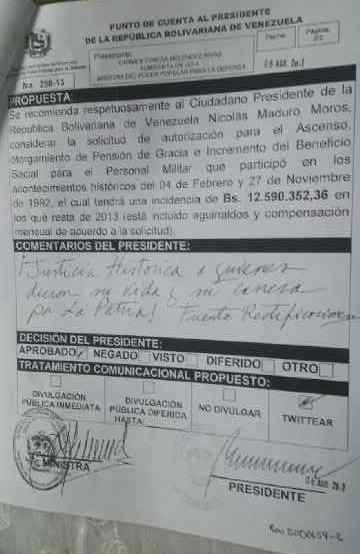 PUNTO DE CUENTA AL PRESIDENTE
DE LA REPÚBLICA BOLIVARIANA DE VENEZUELA
Presentante:
Fecha:
Página:
CARMEN TERESA MELÉNDEZ RIVAS
ALMIRANTA EN JEFA
MINISTRA DEL PODER POPULAR PARA LA DEFENSA
PROPUESTA:
Se recomienda respetuosamente al Ciudadano Presidente de la
República Bolivariana de Venezuela Nicolás Maduro Moros,
considerar la solicitud de autorización para el Ascenso,
otorgamiento de Pensión de Gracia e Incremento del Beneficio
Social para el Personal Militar que participó en los
acontecimientos históricos del 04 de Febrero y 27 de Noviembre
de 1992, el cual tendrá una incidencia de Bs. 12.590.352,36 en
lo que resta de 2013 (está incluido aguinaldos y compensación
mensual de acuerdo a la solicitud).
COMENTARIOS DEL PRESIDENTE:
¡Justicia Histórica a quienes
dieron su vida y su carrera
por La Patria!
DECISIÓN DEL PRESIDENTE:
APROBADO NEGADO VISTO DIFERIDO OTRO
TRATAMIENTO COMUNICACIONAL PROPUESTO:
DIVULGACIÓN PÚBLICA INMEDIATA
DIVULGACIÓN PÚBLICA DIFERIDA HASTA:
NO DIVULGAR
TWITTEAR
MINISTRA
PRESIDENTE